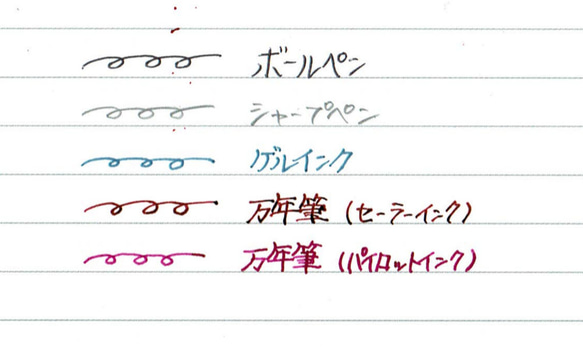 ボールペン
シャープペン
ゲルインク
万年筆 (セーラーインク)
万年筆 (パイロットインク)